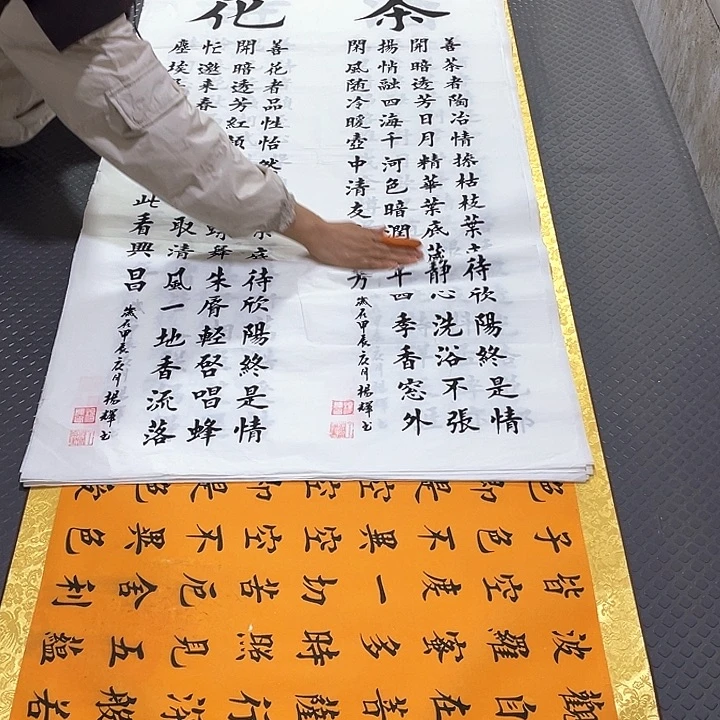 茶
善茶者陶冶情操枯枝葉待欣陽終是情
開暗透芳日月精華葉底藏靜心洗浴不張
揚情融四海千河色暗潤年四季香窓外
閑風随冷暖壺中清友芳
歲在甲辰庚月楊輝書
花
善花者品性怡然底待欣陽終是情
開暗透芳紅顏舞朱唇輕啓唱蜂
忙邀来春取清風一地香流落
塵埃此看興昌
歲在甲辰庚月楊輝書
觀自在菩薩行深般若
波羅蜜多時照見五蘊
皆空度一切苦厄舍利
子色不異空空不異色
色即是空空即是色